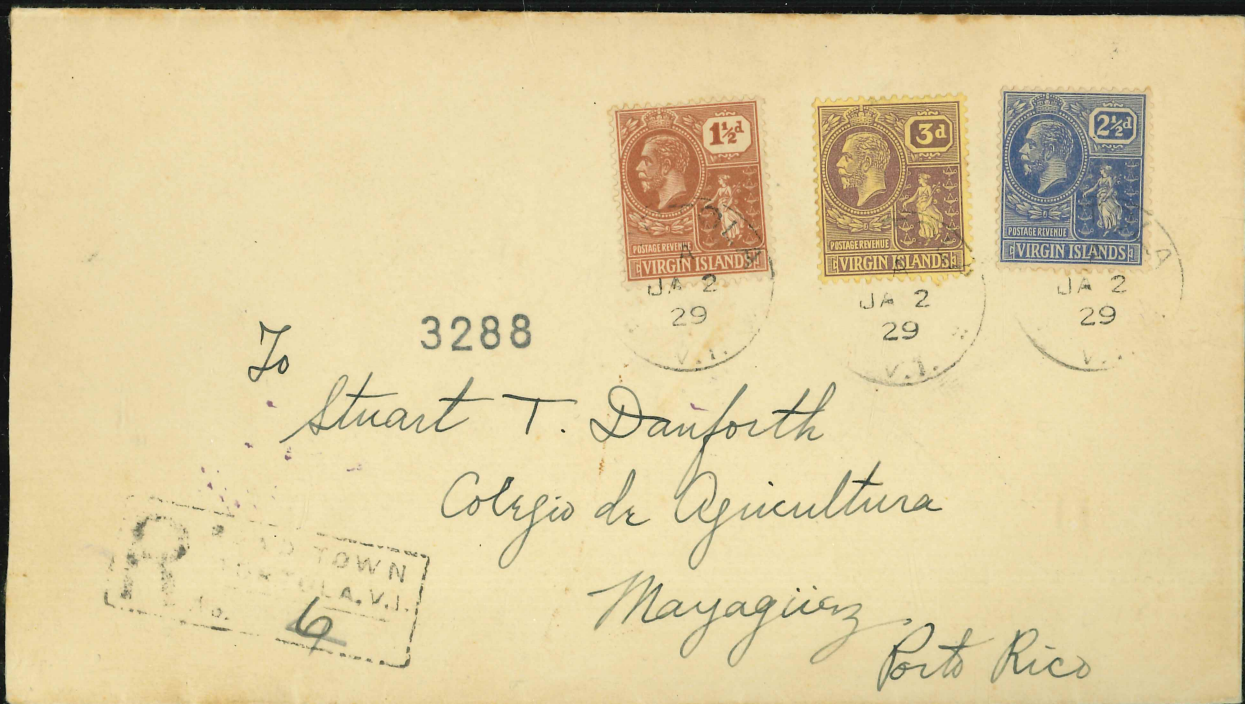 1½d
POSTAGE REVENUE
VIRGIN ISLANDS
3d
POSTAGE REVENUE
VIRGIN ISLANDS
2½d
POSTAGE REVENUE
VIRGIN ISLANDS
A
JA 2
29
V.I.
A
JA 2
29
V.I.
JA 2
29
V.I.
3288
To
Stuart T. Danforth
Colegio de Agricultura
Mayagüez
Porto Rico
R
ROAD TOWN
TORTOLA. V.I.
No. 6